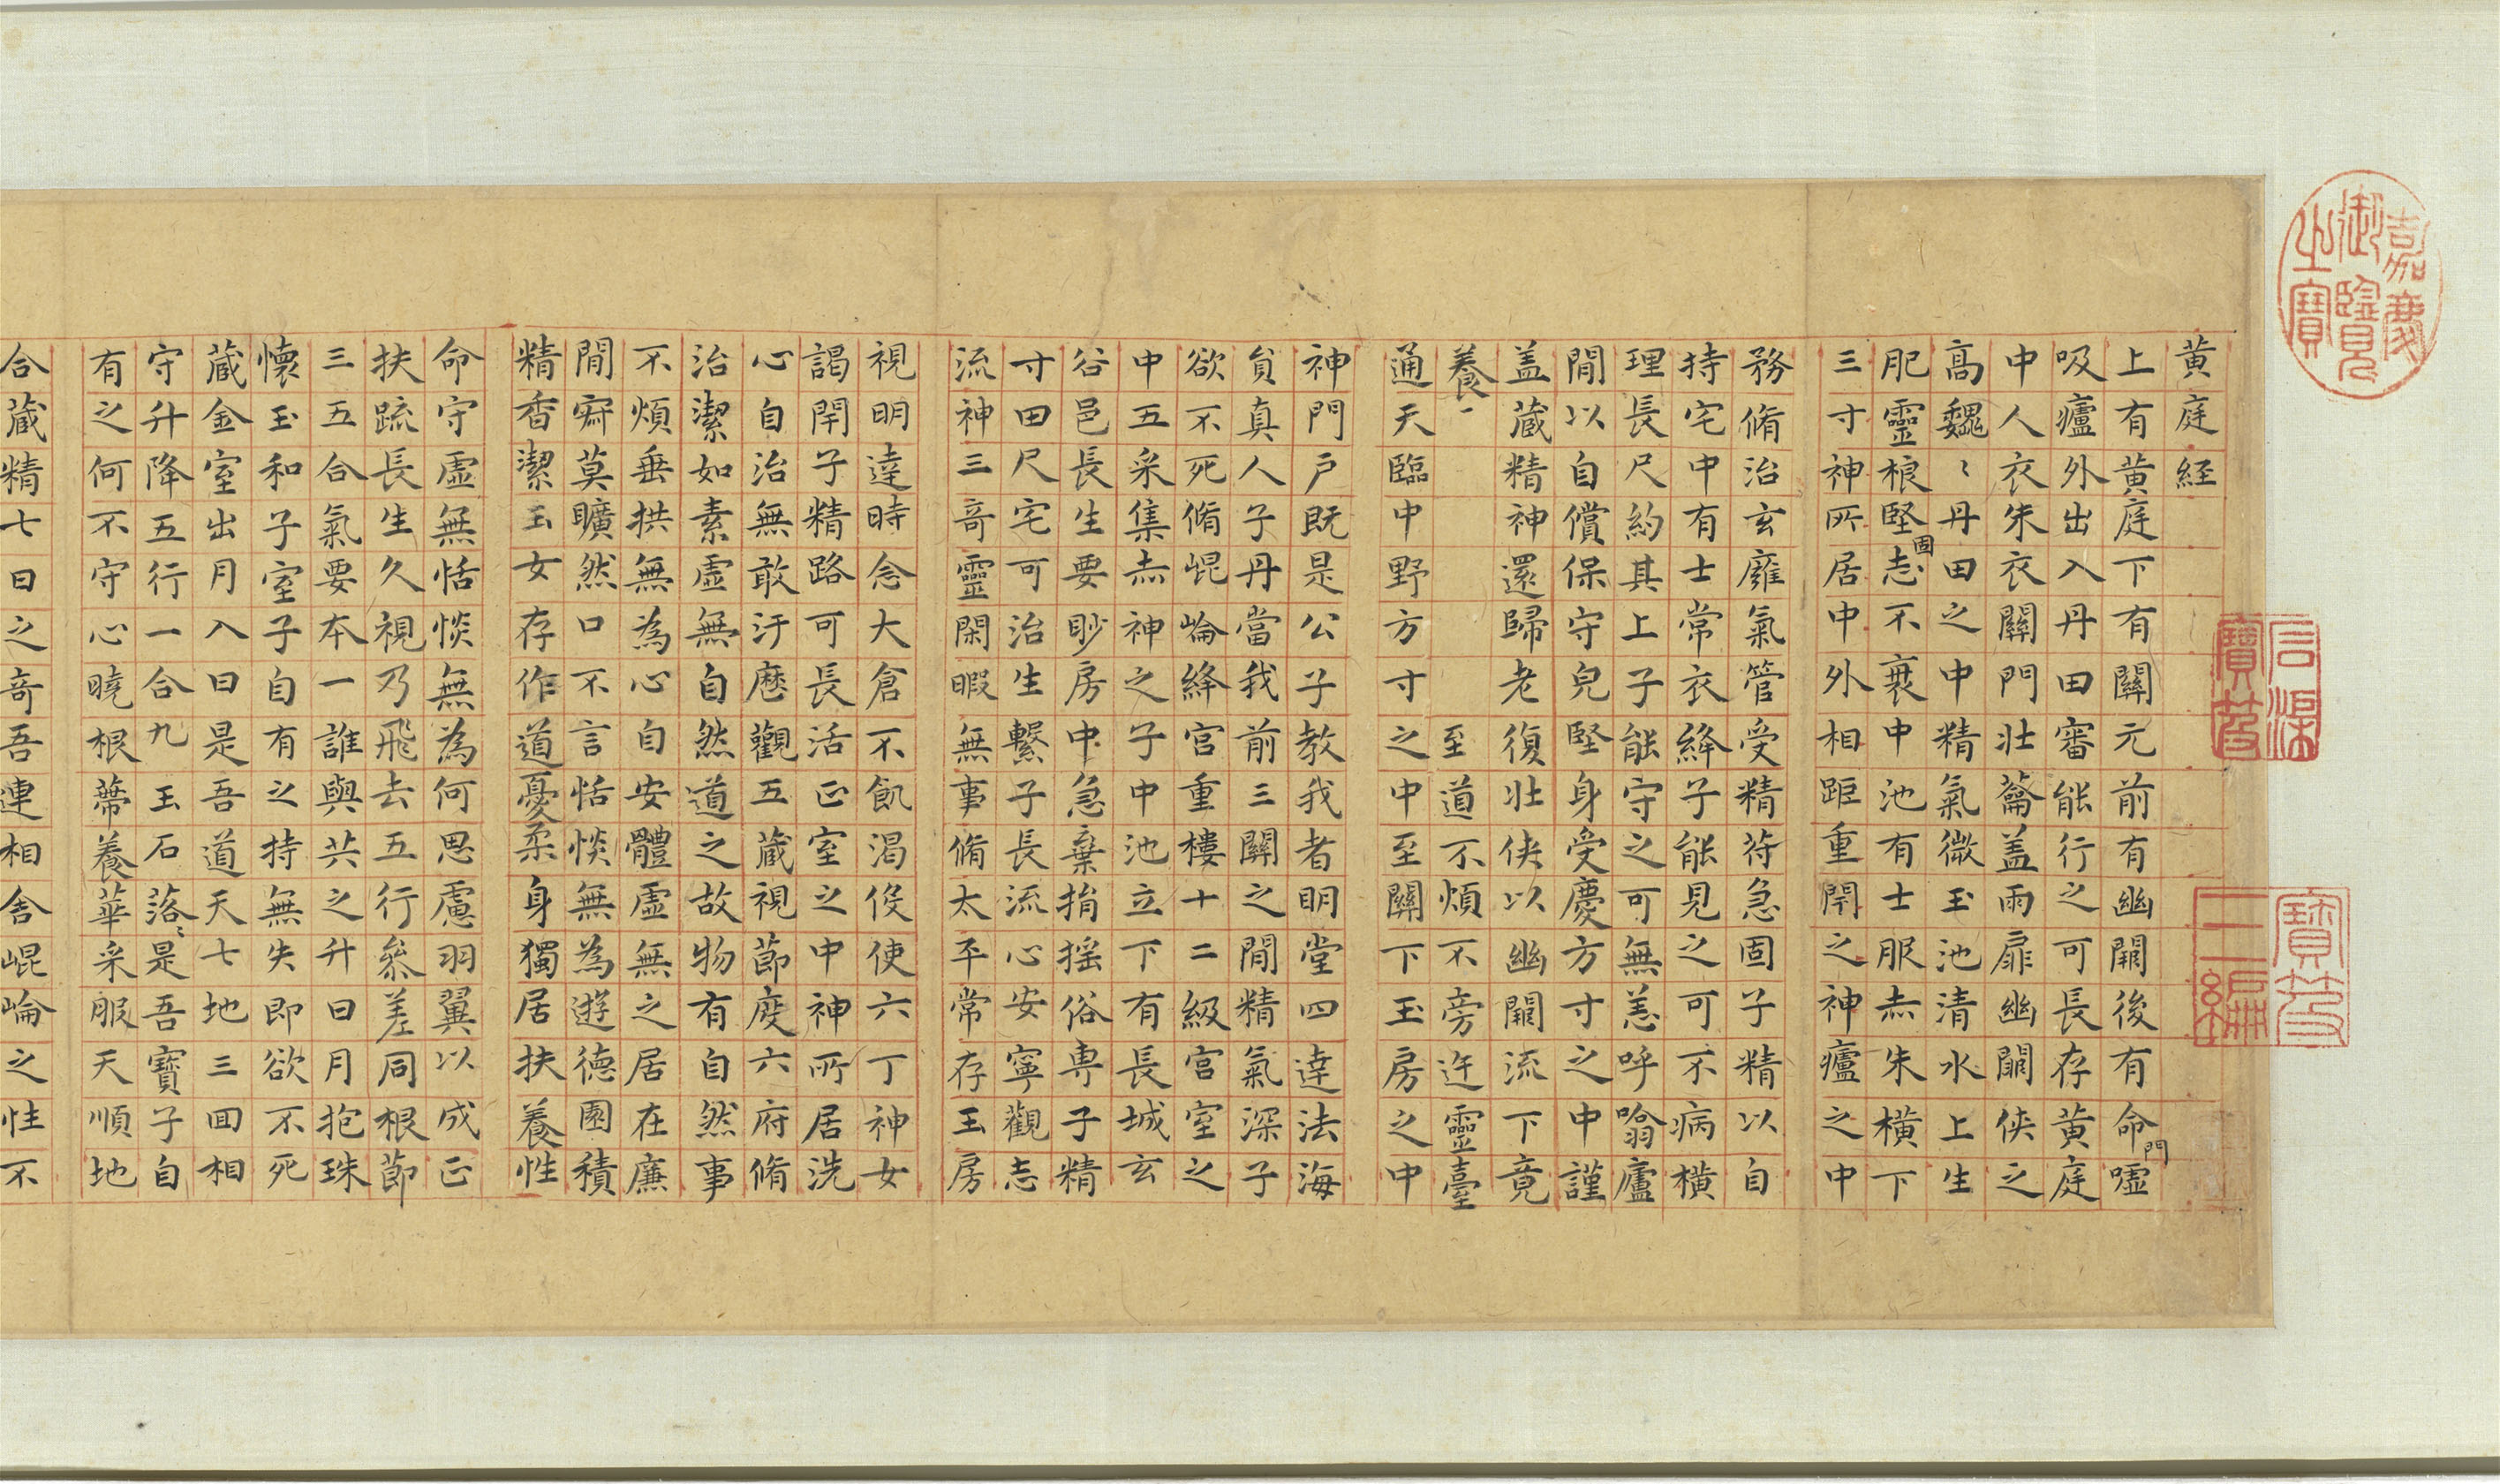 嘉慶御覽之寶
石渠寶笈
寶笈三編
黄庭経
上有黄庭下有關元前有幽闕後有命門噓
吸廬外出入丹田審能行之可長存黄庭
中人衣朱衣關門壯蘥盖兩扉幽闕俠之
高巍〻丹田之中精氣微玉池清水上生
肥靈根堅固志不衰中池有士服赤朱橫下
三寸神所居中外相距重閉之神廬之中
務脩治玄廱氣管受精苻急固子精以自
持宅中有士常衣絳子能見之可不病橫
理長尺約其上子能守之可無恙呼噏廬
閒以自償保守皃堅身受慶方寸之中謹
盖藏精神還歸老復壯俠以幽闕流下竟
養一 至道不煩不旁迕靈臺
通天臨中野方寸之中至關下玉房之中
神門戶既是公子教我者明堂四達法海
負真人子丹當我前三關之閒精氣深子
欲不死脩崐崘絳宮重樓十二級宮室之
中五采集赤神之子中池立下有長城玄
谷邑長生要眇房中急棄捐搖俗專子精
寸田尺宅可治生繫子長流心安寧觀志
流神三奇靈閑暇無事脩太平常存玉房
視明達時念大倉不飢渴役使六丁神女
謁閉子精路可長活正室之中神所居洗
心自治無敢汙歷觀五藏視節度六府脩
治潔如素虛無自然道之故物有自然事
不煩垂拱無為心自安體虛無之居在廉
閒寂莫曠然口不言恬惔無為遊德園積
精香潔玉女存作道憂柔身獨居扶養性
命守虛無恬惔無為何思慮羽翼以成正
扶疏長生久視乃飛去五行參差同根節
三五合氣要本一誰與共之升日月抱珠
懷玉和子室子自有之持無失即欲不死
藏金室出月入日是吾道天七地三回相
守升降五行一合九玉石落〻是吾寶子自
有之何不守心曉根蒂養華采服天順地
合藏精七日之奇吾連相舍崐崘之性不